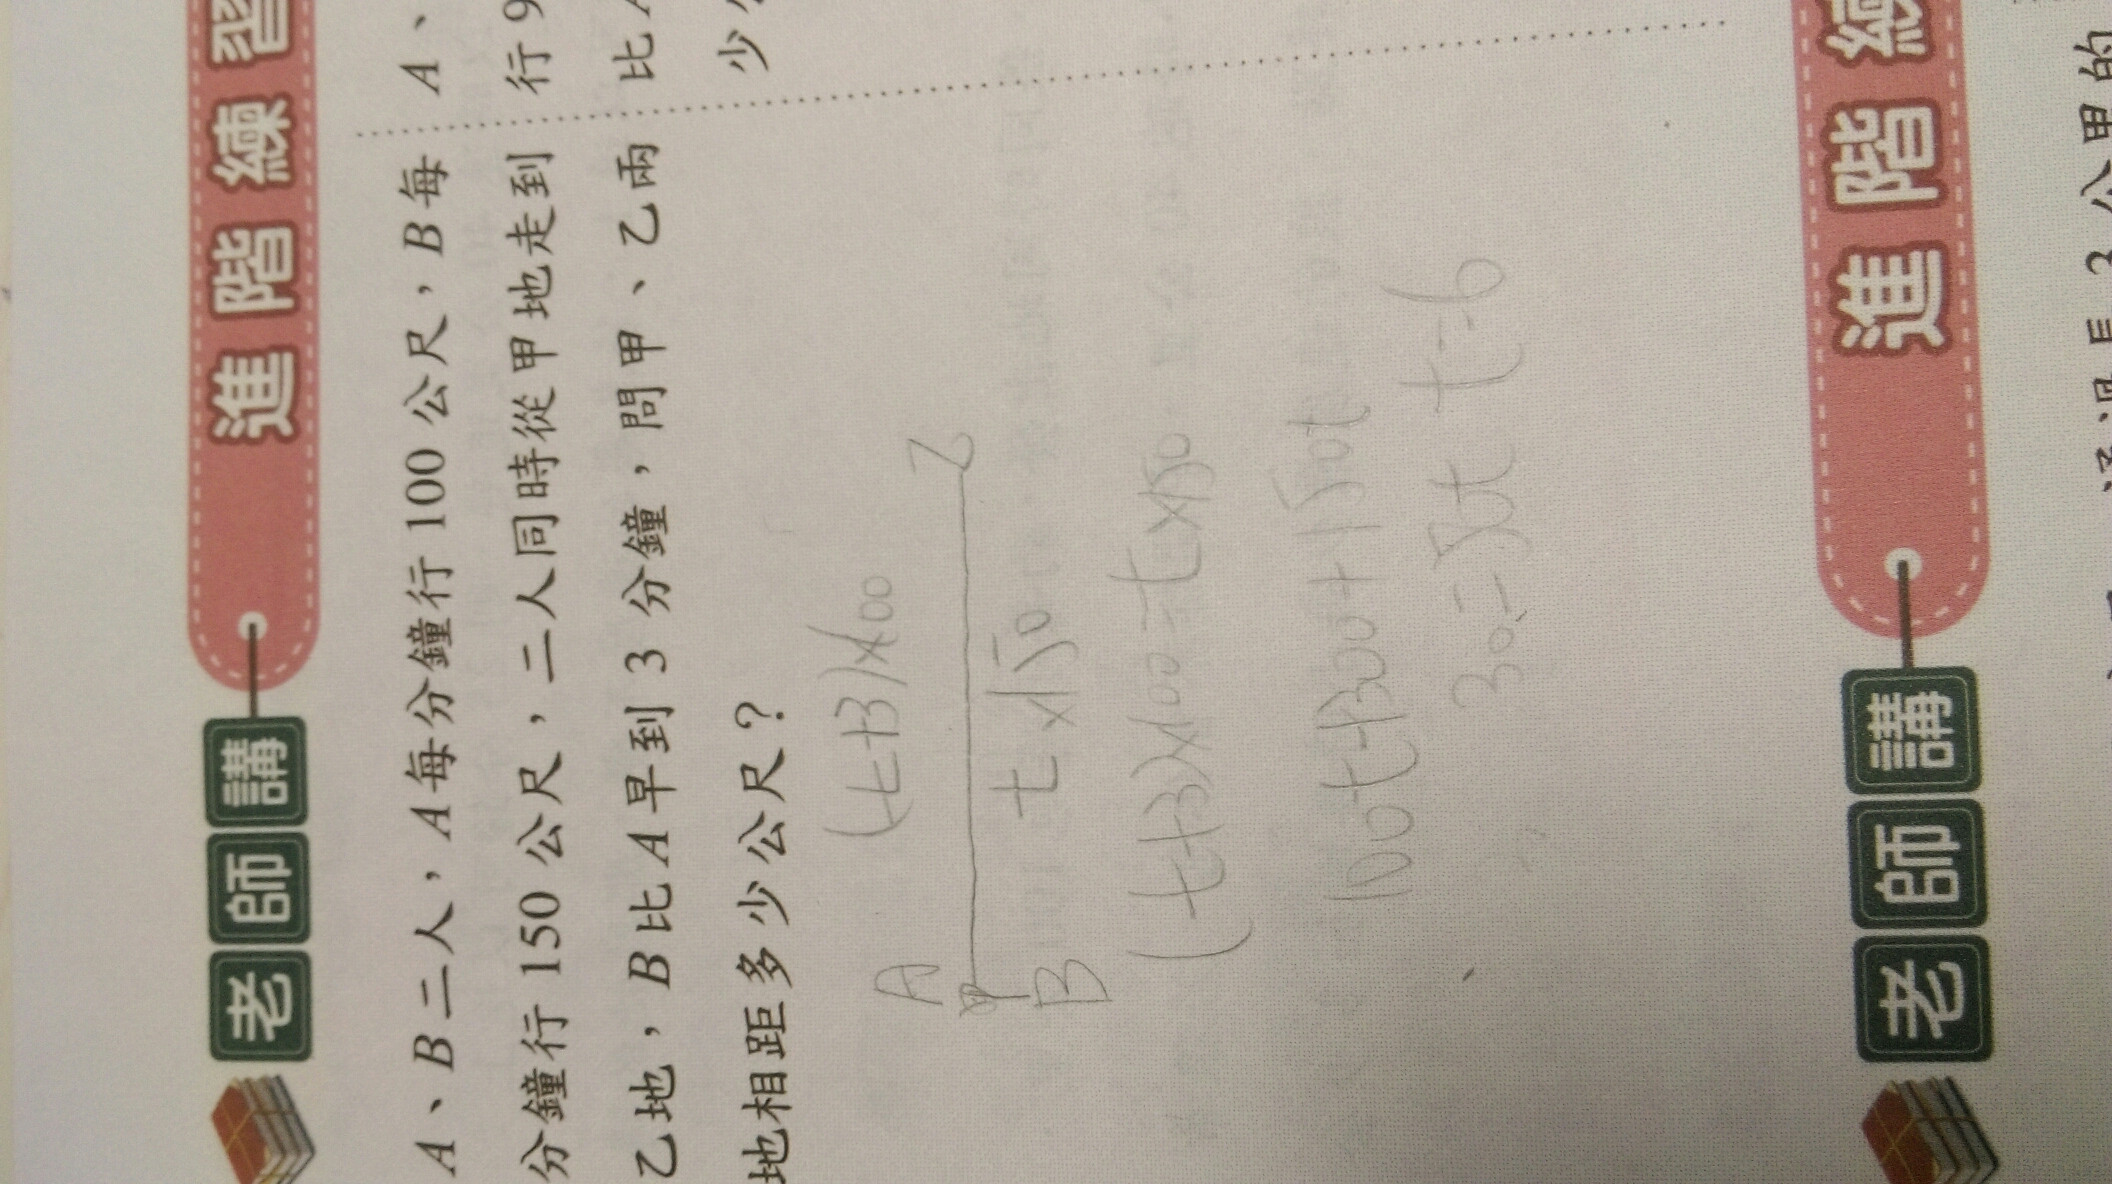 老師講 進階練習
A、B二人，A每分鐘行100公尺，B每
分鐘行150公尺，二人同時從甲地走到
乙地，B比A早到3分鐘，問甲、乙兩
地相距多少公尺？
(t+3)×100
A
甲 乙
B
t×150
(t+3)×100=t×150
100t+300+150t
300=50t t=6
A、
行9
比A
少
老師講 進階練
3公里的